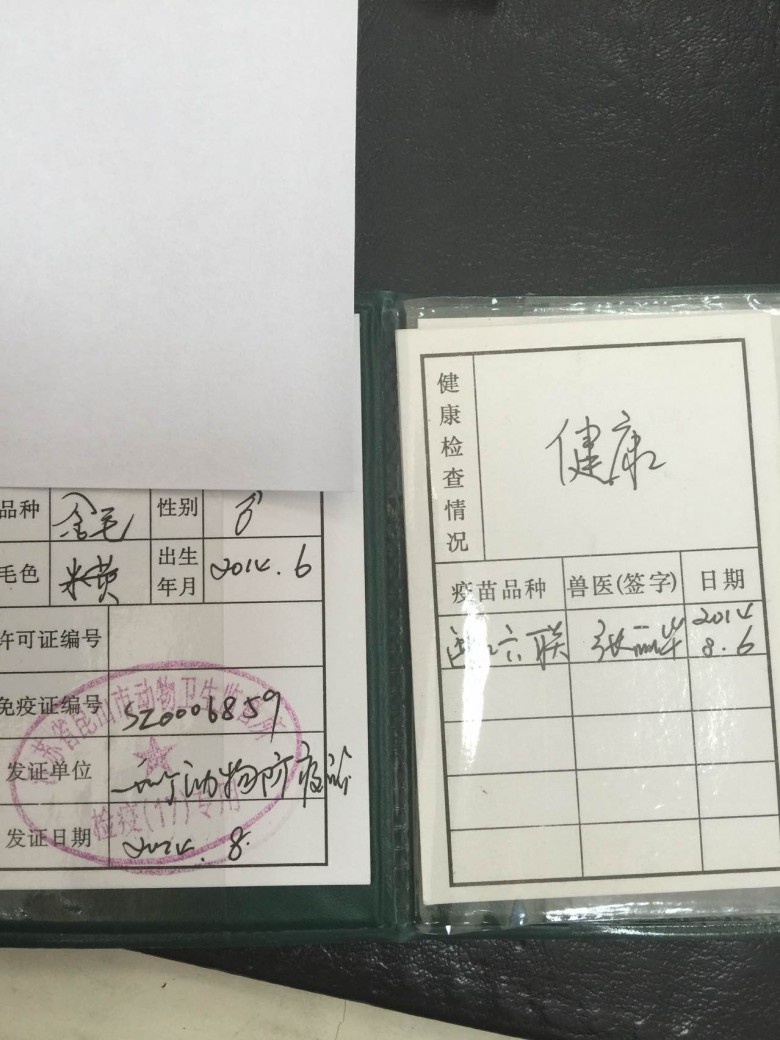 品种 金毛 性别 ♂
毛色 米黄 出生年月 2014.6
许可证编号
免疫证编号 SZ0006859
发证单位 动物防疫站
发证日期 2014.8.
江苏省昆山市动物卫生监督所
检疫(17)专用
健康检查情况 健康
疫苗品种 兽医(签字) 日期
六联 张丽华 2014 8.6